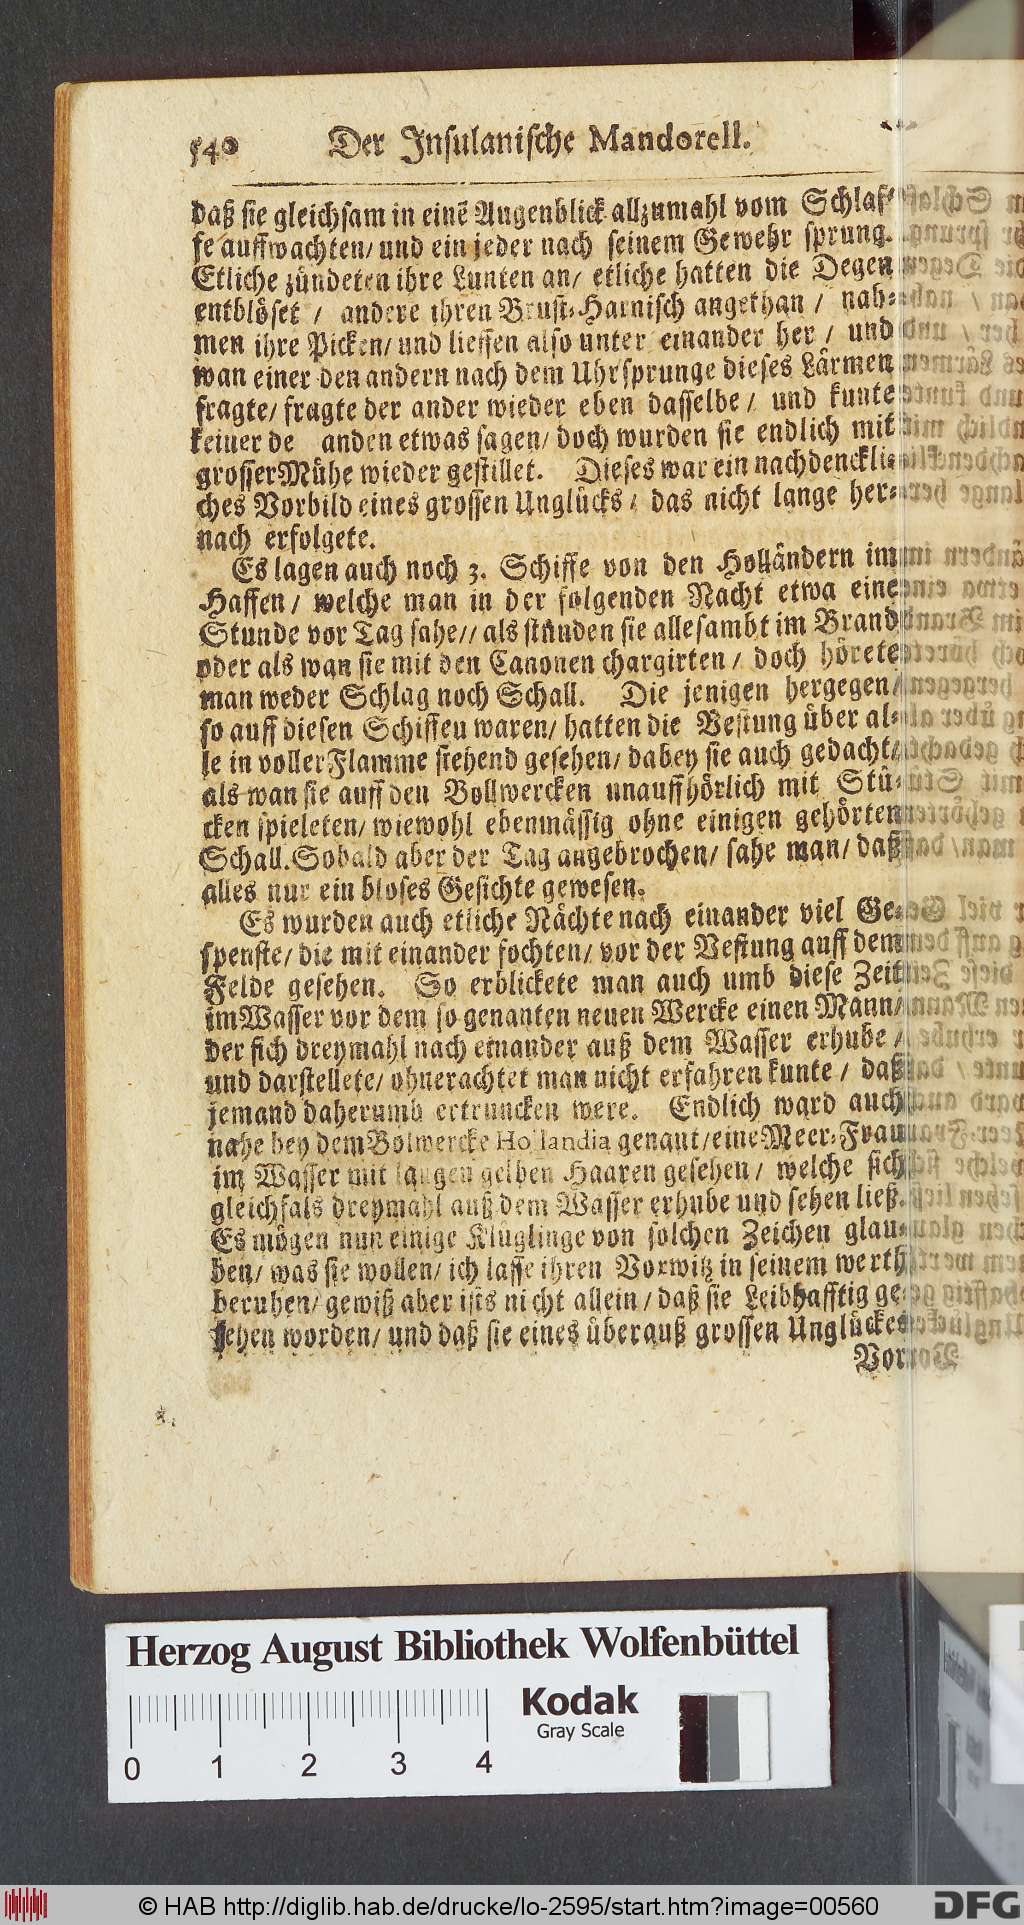 540 Der Insulanische Mandorell.
daß sie gleichsam in einē Augenblick allzumahl vom Schlaf-
fe auffwachten/ und ein jeder nach seinem Gewehr sprung.
Etliche zündeten ihre Lunten an/ etliche hatten die Degen
entblöset / andere ihren Brust-Harnisch angethan / nah-
men ihre Picken/ und lieffen also unter einander her / und
wan einer den andern nach dem Uhrsprunge dieses Lärmen
fragte/ fragte der ander wieder eben dasselbe / und kunte
keiner de anden etwas sagen/ doch wurden sie endlich mit
grosser Mühe wieder gestillet. Dieses war ein nachdenckli-
ches Vorbild eines grossen Unglücks / das nicht lange her-
nach erfolgete.
Es lagen auch noch 3. Schiffe von den Holländern im
Haffen / welche man in der folgenden Nacht etwa eine
Stunde vor Tag sahe// als stünden sie allesambt im Brand
oder als wan sie mit den Canonen chargirten / doch hörete
man weder Schlag noch Schall. Die jenigen hergegen/
so auff diesen Schiffen waren/ hatten die Vestung über al-
le in voller Flamme stehend gesehen/ dabey sie auch gedacht/
als wan sie auff den Bollwercken unauffhörlich mit Stü-
cken spieleten/ wiewohl ebenmässig ohne einigen gehörten
Schall. Sobald aber der Tag angebrochen/ sahe man/ daß
alles nur ein bloses Gesichte gewesen.
Es wurden auch etliche Nächte nach einander viel Ge-
spenste/ die mit einander fochten/ vor der Vestung auff dem
Felde gesehen. So erblickete man auch umb diese Zeit
im Wasser vor dem so genanten neuen Wercke einen Mann/
der sich dreymahl nach einander auß dem Wasser erhube /
und darstellete/ ohnerachtet man nicht erfahren kunte / daß
jemand daherumb ertruncken were. Endlich ward auch
nahe bey dem Bolwercke Hollandia genant/ eine Meer-Frau
im Wasser mit langen gelben Haaren gesehen / welche sich
gleichfals dreymahl auß dem Wasser erhube und sehen ließ.
Es mögen nun einige Klüglinge von solchen Zeichen glau-
ben/ was sie wollen/ ich lasse ihren Vorwitz in seinem werth
beruhen/ gewiß aber ists nicht allein / daß sie Leibhafftig ge-
sehen worden/ und daß sie eines überauß grossen Unglückes
Vor
Herzog August Bibliothek Wolfenbüttel
Kodak
Gray Scale
0 1 2 3 4
© HAB http://diglib.hab.de/drucke/lo-2595/start.htm?image=00560
DFG